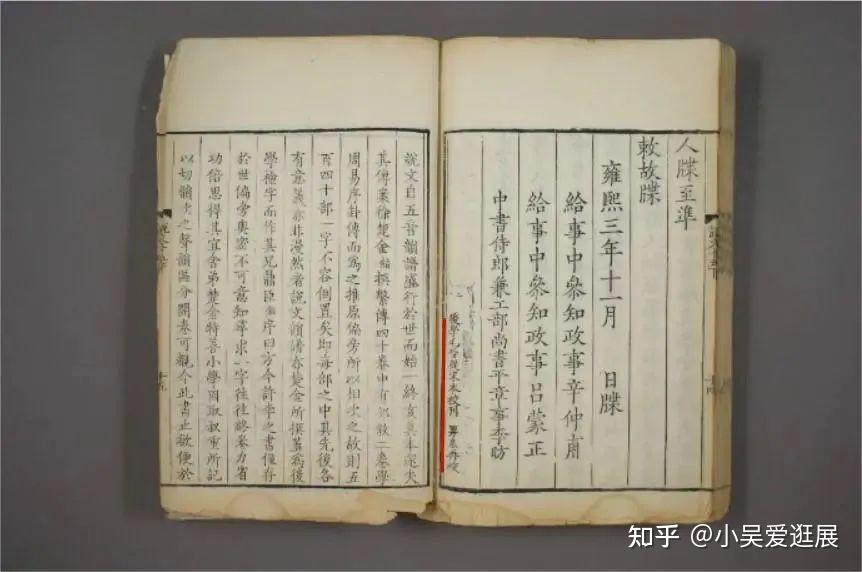 人牒至準
敕故牒
雍熙三年十一月 日牒
給事中參知政事辛仲甫
給事中參知政事呂蒙正
中書侍郎兼工部尚書平章事李昉
後學毛晉從宋本校刊 男扆再校
說文自五音韻譜盛行於世而始一終亥真本遂失
其傳案徐楚金鍇撰繫傳四十卷中有部敘二卷學
周易序卦傳而為之推原偏旁所以相次之故則五
百四十部一字不容倒置矣即每部之中其先後各
有意義亦非漫然者說文韻譜亦楚金所撰蓋為後
學檢字而作其兄鼎臣鉉序曰方今許李之書僅存
於世偏旁奧密不可意知尋求一字往往終卷力省
功倍思得其宜舍弟楚金特善小學因取叔重所記
以切韻次之聲韻區分開卷可觀今此書止欲便於
知乎 @小吴爱逛展